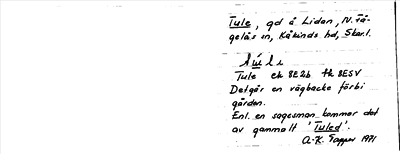 Tule, gd å Lidan, N. Vå-
gelås sn, Kåkinds hd, Skarl.
Tule ek 8E2b fk 8ESV
Det går en vägbacke förbi
gården.
Enl. en sagesman kommer det
av gammalt 'Tuled'.
A-K. 1971